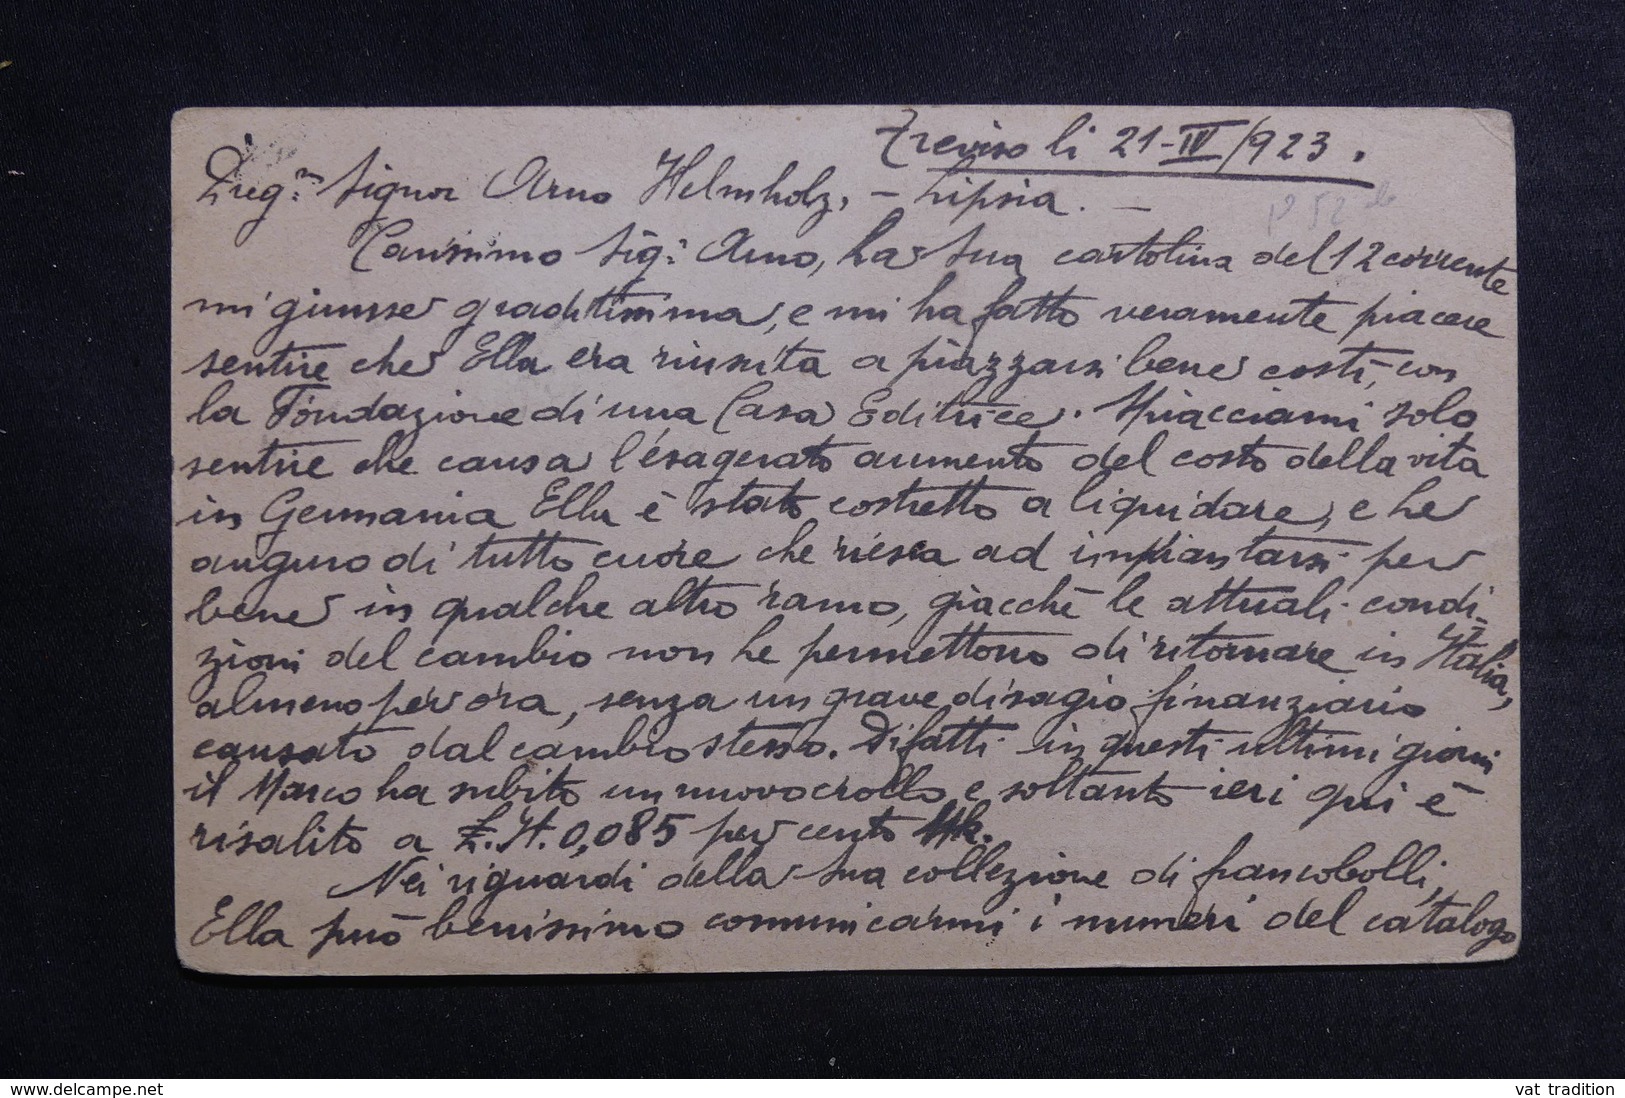 Treviso li 21-IV/923.
Preg.mo Signor Arno Helmholz, - Lipsia. -
Carissimo Sig.r Arno, La Sua cartolina del 12 corrente
mi giunse graditissima, e mi ha fatto veramente piacere
sentire che Ella era riuscita a piazzarsi bene costì, con
la Fondazione di una Casa Editrice. Spiacciami solo
sentire che causa l'esagerato aumento del costo della vita
in Germania Ella è stato costretto a liquidare, e Le
auguro di tutto cuore che riesca ad impiantarsi per
bene in qualche altro ramo, giacchè le attuali condi=
zioni del cambio non Le permettono di ritornare in Italia,
almeno per ora, senza un grave disagio finanziario
causato dal cambio stesso. Difatti in questi ultimi giorni
il Marco ha subito un nuovo crollo e soltanto ieri qui è
risalito a £.It. 0,085 per cento Mk.
Nei riguardi della Sua collezione di francobolli,
Ella può benissimo comunicarmi i numeri del catalogo
www.delcampe.net
vat tradition